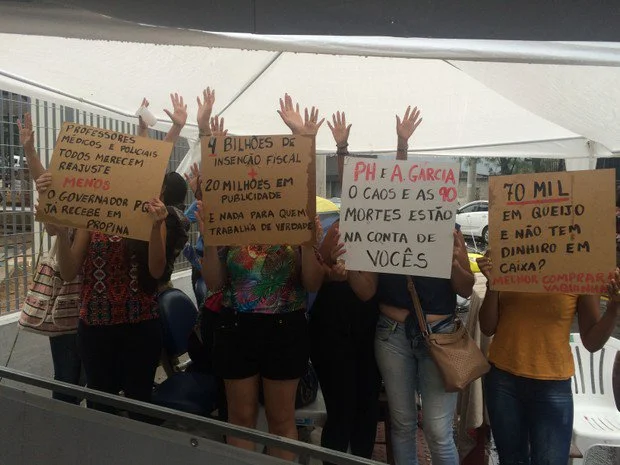 PROFESSORES
MÉDICOS E POLICIAIS
TODOS MERECEM
REAJUSTE
MENOS
O GOVERNADOR PQ
JÁ RECEBE EM
PROPINA
4 BILHÕES DE
INSENÇÃO FISCAL
+
20 MILHÕES EM
PUBLICIDADE
E NADA PARA QUEM
TRABALHA DE VERDADE
PH E A. GARCIA
O CAOS E AS 90
MORTES ESTÃO
NA CONTA DE
VOCÊS
70 MIL
EM QUEIJO
E NÃO TEM
DINHEIRO EM
CAIXA?
MELHOR COMPRAR A
VAQUINHA